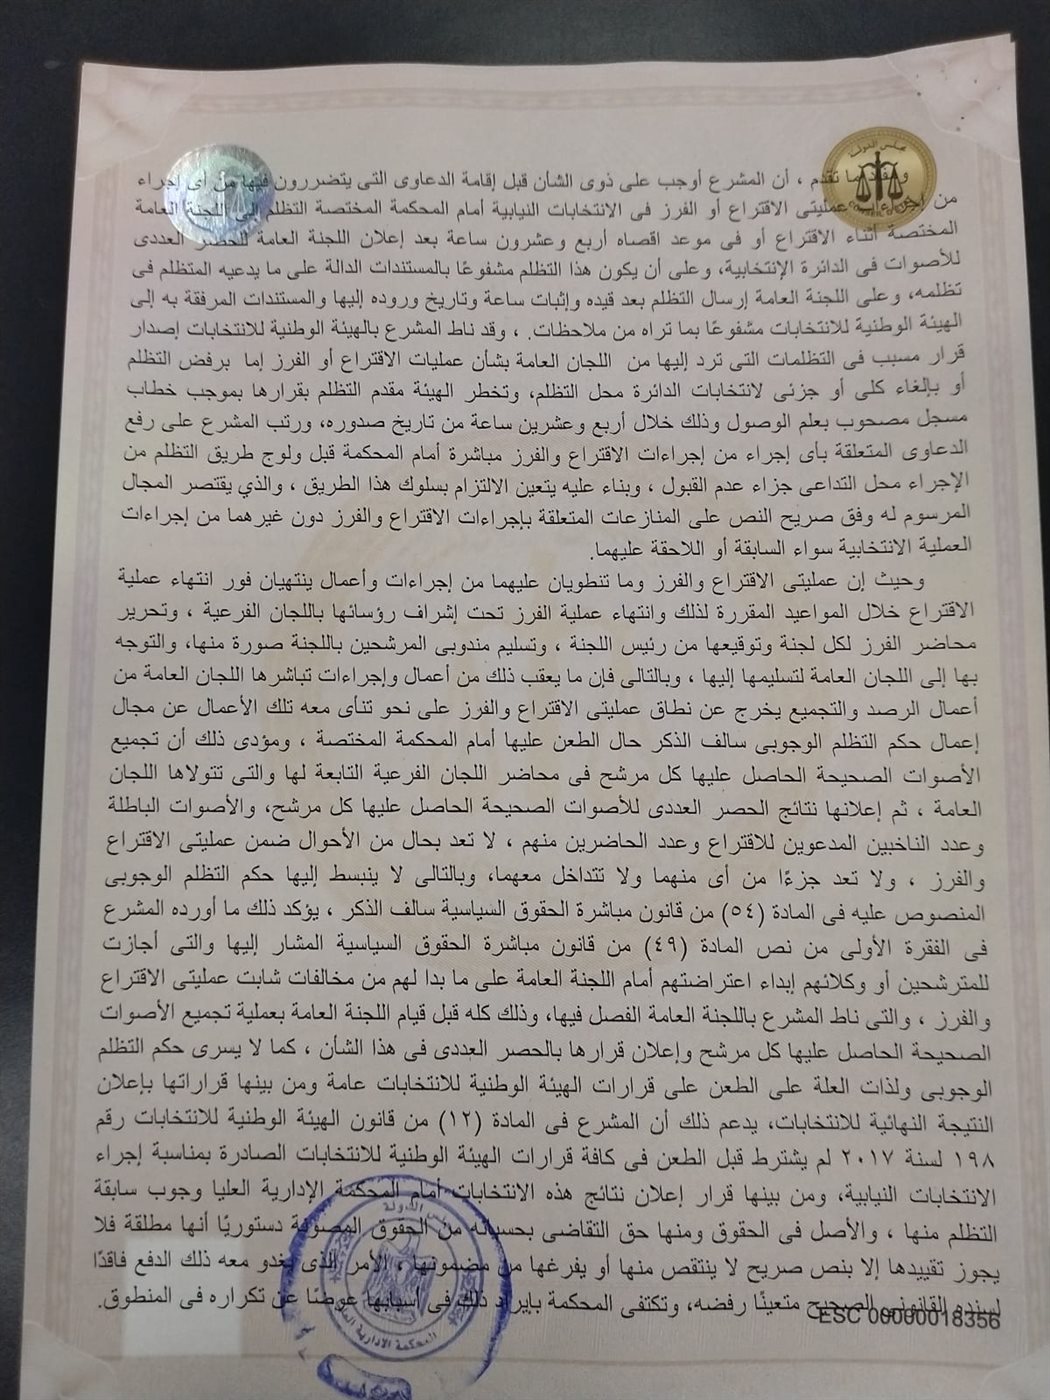 مجلس الدولة
ومفاد ما تقدم ، أن المشرع أوجب على ذوى الشان قبل إقامة الدعاوى التى يتضررون فيها من أى إجراء
من إجراءات عمليتى الاقتراع أو الفرز فى الانتخابات النيابية أمام المحكمة المختصة التظلم إلى اللجنة العامة
المختصة أثناء الاقتراع أو فى موعد اقصاه أربع وعشرون ساعة بعد إعلان اللجنة العامة للحصر العددى
للأصوات فى الدائرة الإنتخابية، وعلى أن يكون هذا التظلم مشفوعًا بالمستندات الدالة على ما يدعيه المتظلم فى
تظلمه، وعلى اللجنة العامة إرسال التظلم بعد قيده وإثبات ساعة وتاريخ وروده إليها والمستندات المرفقة به إلى
الهيئة الوطنية للانتخابات مشفوعًا بما تراه من ملاحظات. ، وقد ناط المشرع بالهيئة الوطنية للانتخابات إصدار
قرار مسبب فى التظلمات التى ترد إليها من اللجان العامة بشأن عمليات الاقتراع أو الفرز إما برفض التظلم
أو بإلغاء كلى أو جزئى لانتخابات الدائرة محل التظلم، وتخطر الهيئة مقدم التظلم بقرارها بموجب خطاب
مسجل مصحوب بعلم الوصول وذلك خلال أربع وعشرين ساعة من تاريخ صدوره، ورتب المشرع على رفع
الدعاوى المتعلقة بأى إجراء من إجراءات الاقتراع والفرز مباشرة أمام المحكمة قبل ولوج طريق التظلم من
الإجراء محل التداعى جزاء عدم القبول ، وبناء عليه يتعين الالتزام بسلوك هذا الطريق ، والذي يقتصر المجال
المرسوم له وفق صريح النص على المنازعات المتعلقة بإجراءات الاقتراع والفرز دون غيرهما من إجراءات
العملية الانتخابية سواء السابقة أو اللاحقة عليهما.
وحيث إن عمليتى الاقتراع والفرز وما تنطويان عليهما من إجراءات وأعمال ينتهيان فور انتهاء عملية
الاقتراع خلال المواعيد المقررة لذلك وانتهاء عملية الفرز تحت إشراف رؤسائها باللجان الفرعية ، وتحرير
محاضر الفرز لكل لجنة وتوقيعها من رئيس اللجنة ، وتسليم مندوبى المرشحين باللجنة صورة منها، والتوجه
بها إلى اللجان العامة لتسليمها إليها ، وبالتالى فإن ما يعقب ذلك من أعمال وإجراءات تباشرها اللجان العامة من
أعمال الرصد والتجميع يخرج عن نطاق عمليتى الاقتراع والفرز على نحو تنأى معه تلك الأعمال عن مجال
إعمال حكم التظلم الوجوبى سالف الذكر حال الطعن عليها أمام المحكمة المختصة ، ومؤدى ذلك أن تجميع
الأصوات الصحيحة الحاصل عليها كل مرشح فى محاضر اللجان الفرعية التابعة لها والتى تتولاها اللجان
العامة ، ثم إعلانها نتائج الحصر العددى للأصوات الصحيحة الحاصل عليها كل مرشح، والأصوات الباطلة
وعدد الناخبين المدعوين للاقتراع وعدد الحاضرين منهم ، لا تعد بحال من الأحوال ضمن عمليتى الاقتراع
والفرز ، ولا تعد جزءًا من أى منهما ولا تتداخل معهما، وبالتالى لا ينبسط إليها حكم التظلم الوجوبى
المنصوص عليه فى المادة (٥٤) من قانون مباشرة الحقوق السياسية سالف الذكر ، يؤكد ذلك ما أورده المشرع
فى الفقرة الأولى من نص المادة (٤٩) من قانون مباشرة الحقوق السياسية المشار إليها والتى أجازت
للمترشحين أو وكلائهم إبداء اعتراضتهم أمام اللجنة العامة على ما بدا لهم من مخالفات شابت عمليتى الاقتراع
والفرز ، والتى ناط المشرع باللجنة العامة الفصل فيها، وذلك كله قبل قيام اللجنة العامة بعملية تجميع الأصوات
الصحيحة الحاصل عليها كل مرشح وإعلان قرارها بالحصر العددى فى هذا الشأن ، كما لا يسرى حكم التظلم
الوجوبى ولذات العلة على الطعن على قرارات الهيئة الوطنية للانتخابات عامة ومن بينها قراراتها بإعلان
النتيجة النهائية للانتخابات، يدعم ذلك أن المشرع فى المادة (١٢) من قانون الهيئة الوطنية للانتخابات رقم
١٩٨ لسنة ٢٠١٧ لم يشترط قبل الطعن فى كافة قرارات الهيئة الوطنية للانتخابات الصادرة بمناسبة إجراء
الانتخابات النيابية، ومن بينها قرار إعلان نتائج هذه الانتخابات أمام المحكمة الإدارية العليا وجوب سابقة
التظلم منها ، والأصل فى الحقوق ومنها حق التقاضى بحسبانه من الحقوق المصونة دستوريًا أنها مطلقة فلا
يجوز تقييدها إلا بنص صريح لا ينتقص منها أو يفرغها من مضمونها ، الأمر الذى يغدو معه ذلك الدفع فاقدًا
لسنده القانونى الصحيح متعينًا رفضه، وتكتفى المحكمة بإيراد ذلك فى أسبابها عوضًا عن تكراره فى المنطوق.
ESC 00000018356
المحكمة الادارية